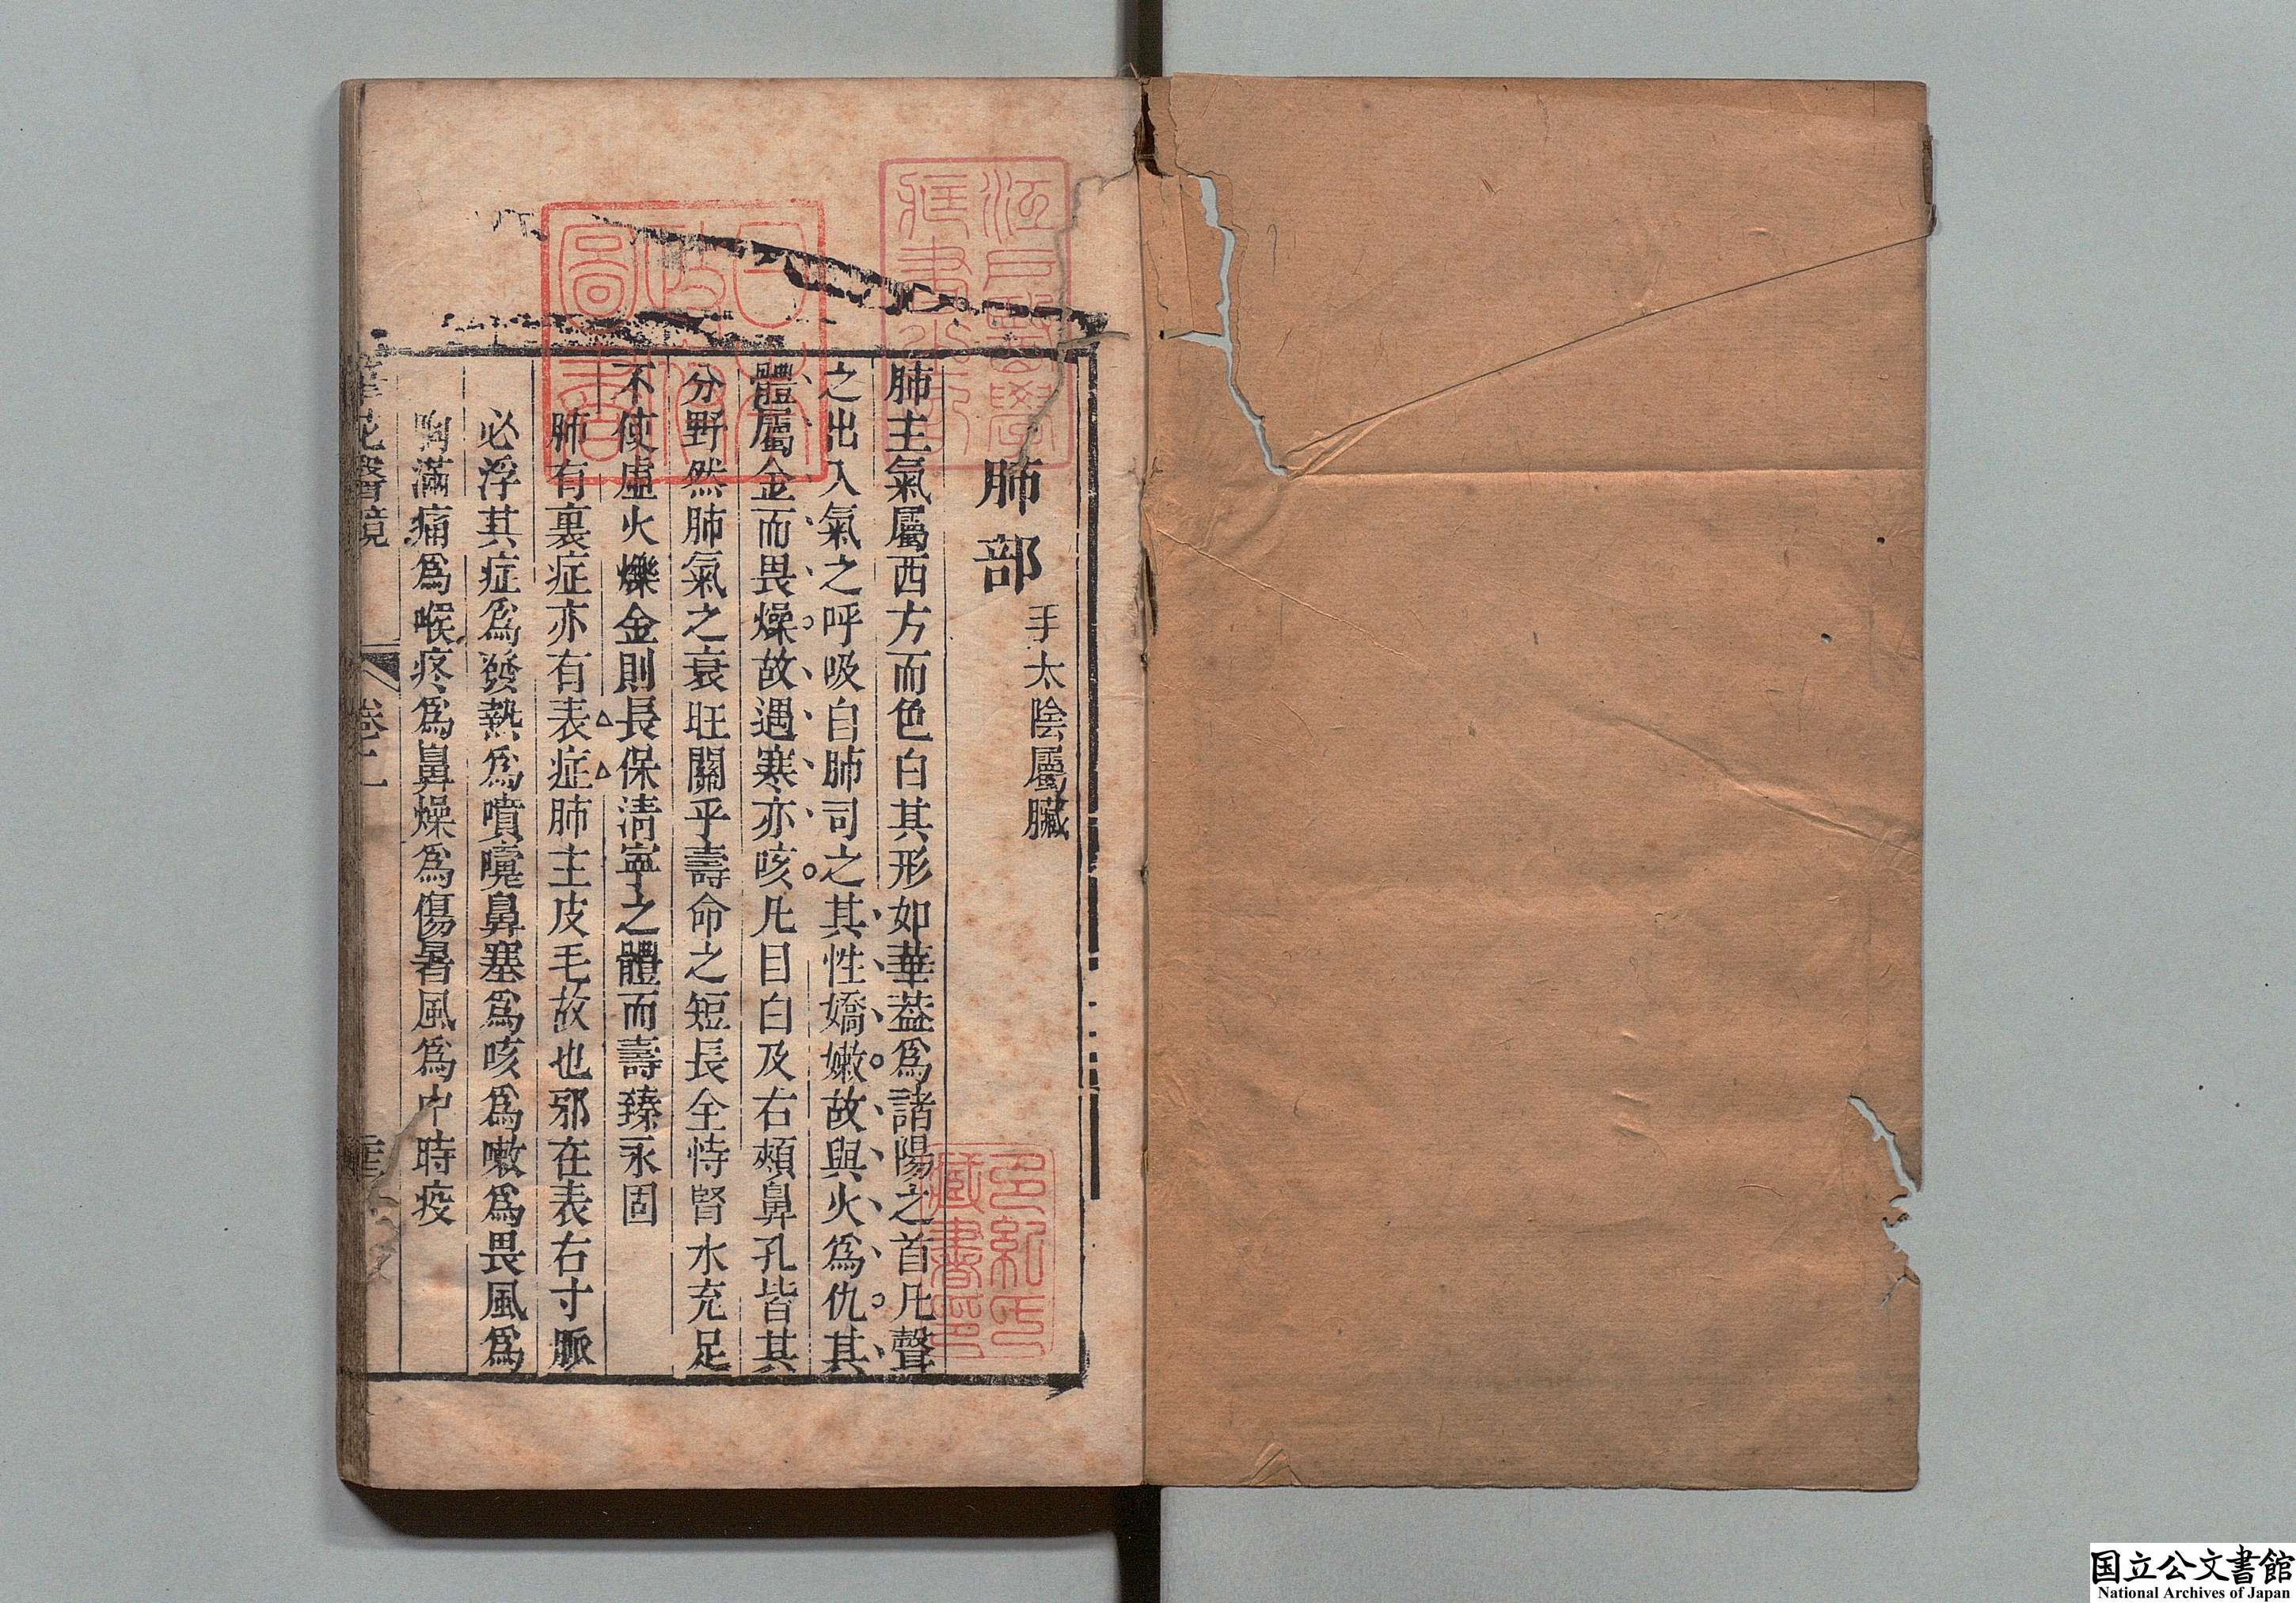 肺部 手太陰屬臟
肺主氣屬西方而色白其形如華葢爲諸陽之首凡聲
之出入氣之呼吸自肺司之其性嬌嫩故與火爲仇其
體屬金而畏燥故遇寒亦咳凡目白及右頰鼻孔皆其
分野然肺氣之衰旺關乎壽命之短長全恃腎水充足
不使虛火爍金則長保清寧之體而壽臻永固
肺有裏症亦有表症肺主皮毛故也邪在表右寸脈
必浮其症爲發熱爲噴嚏鼻塞爲咳爲嗽爲畏風爲
胸滿痛爲喉疼爲鼻燥爲傷暑風爲中時疫
筆花醫鏡
卷二
江戶醫學
藏書之印
日本
政府
圖書
多紀氏
藏書印
国立公文書館
National Archives of Japan